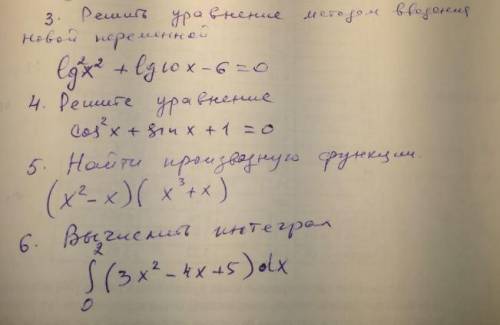 3. Решить уравнение методом введения
новой переменной
lg²x² + lg10x - 6 = 0
4. Решите уравнение
cos²x + sinx + 1 = 0
5. Найти производную функции.
(x² - x)(x³ + x)
6. Вычислить интеграл
∫₀² (3x² - 4x + 5) dx